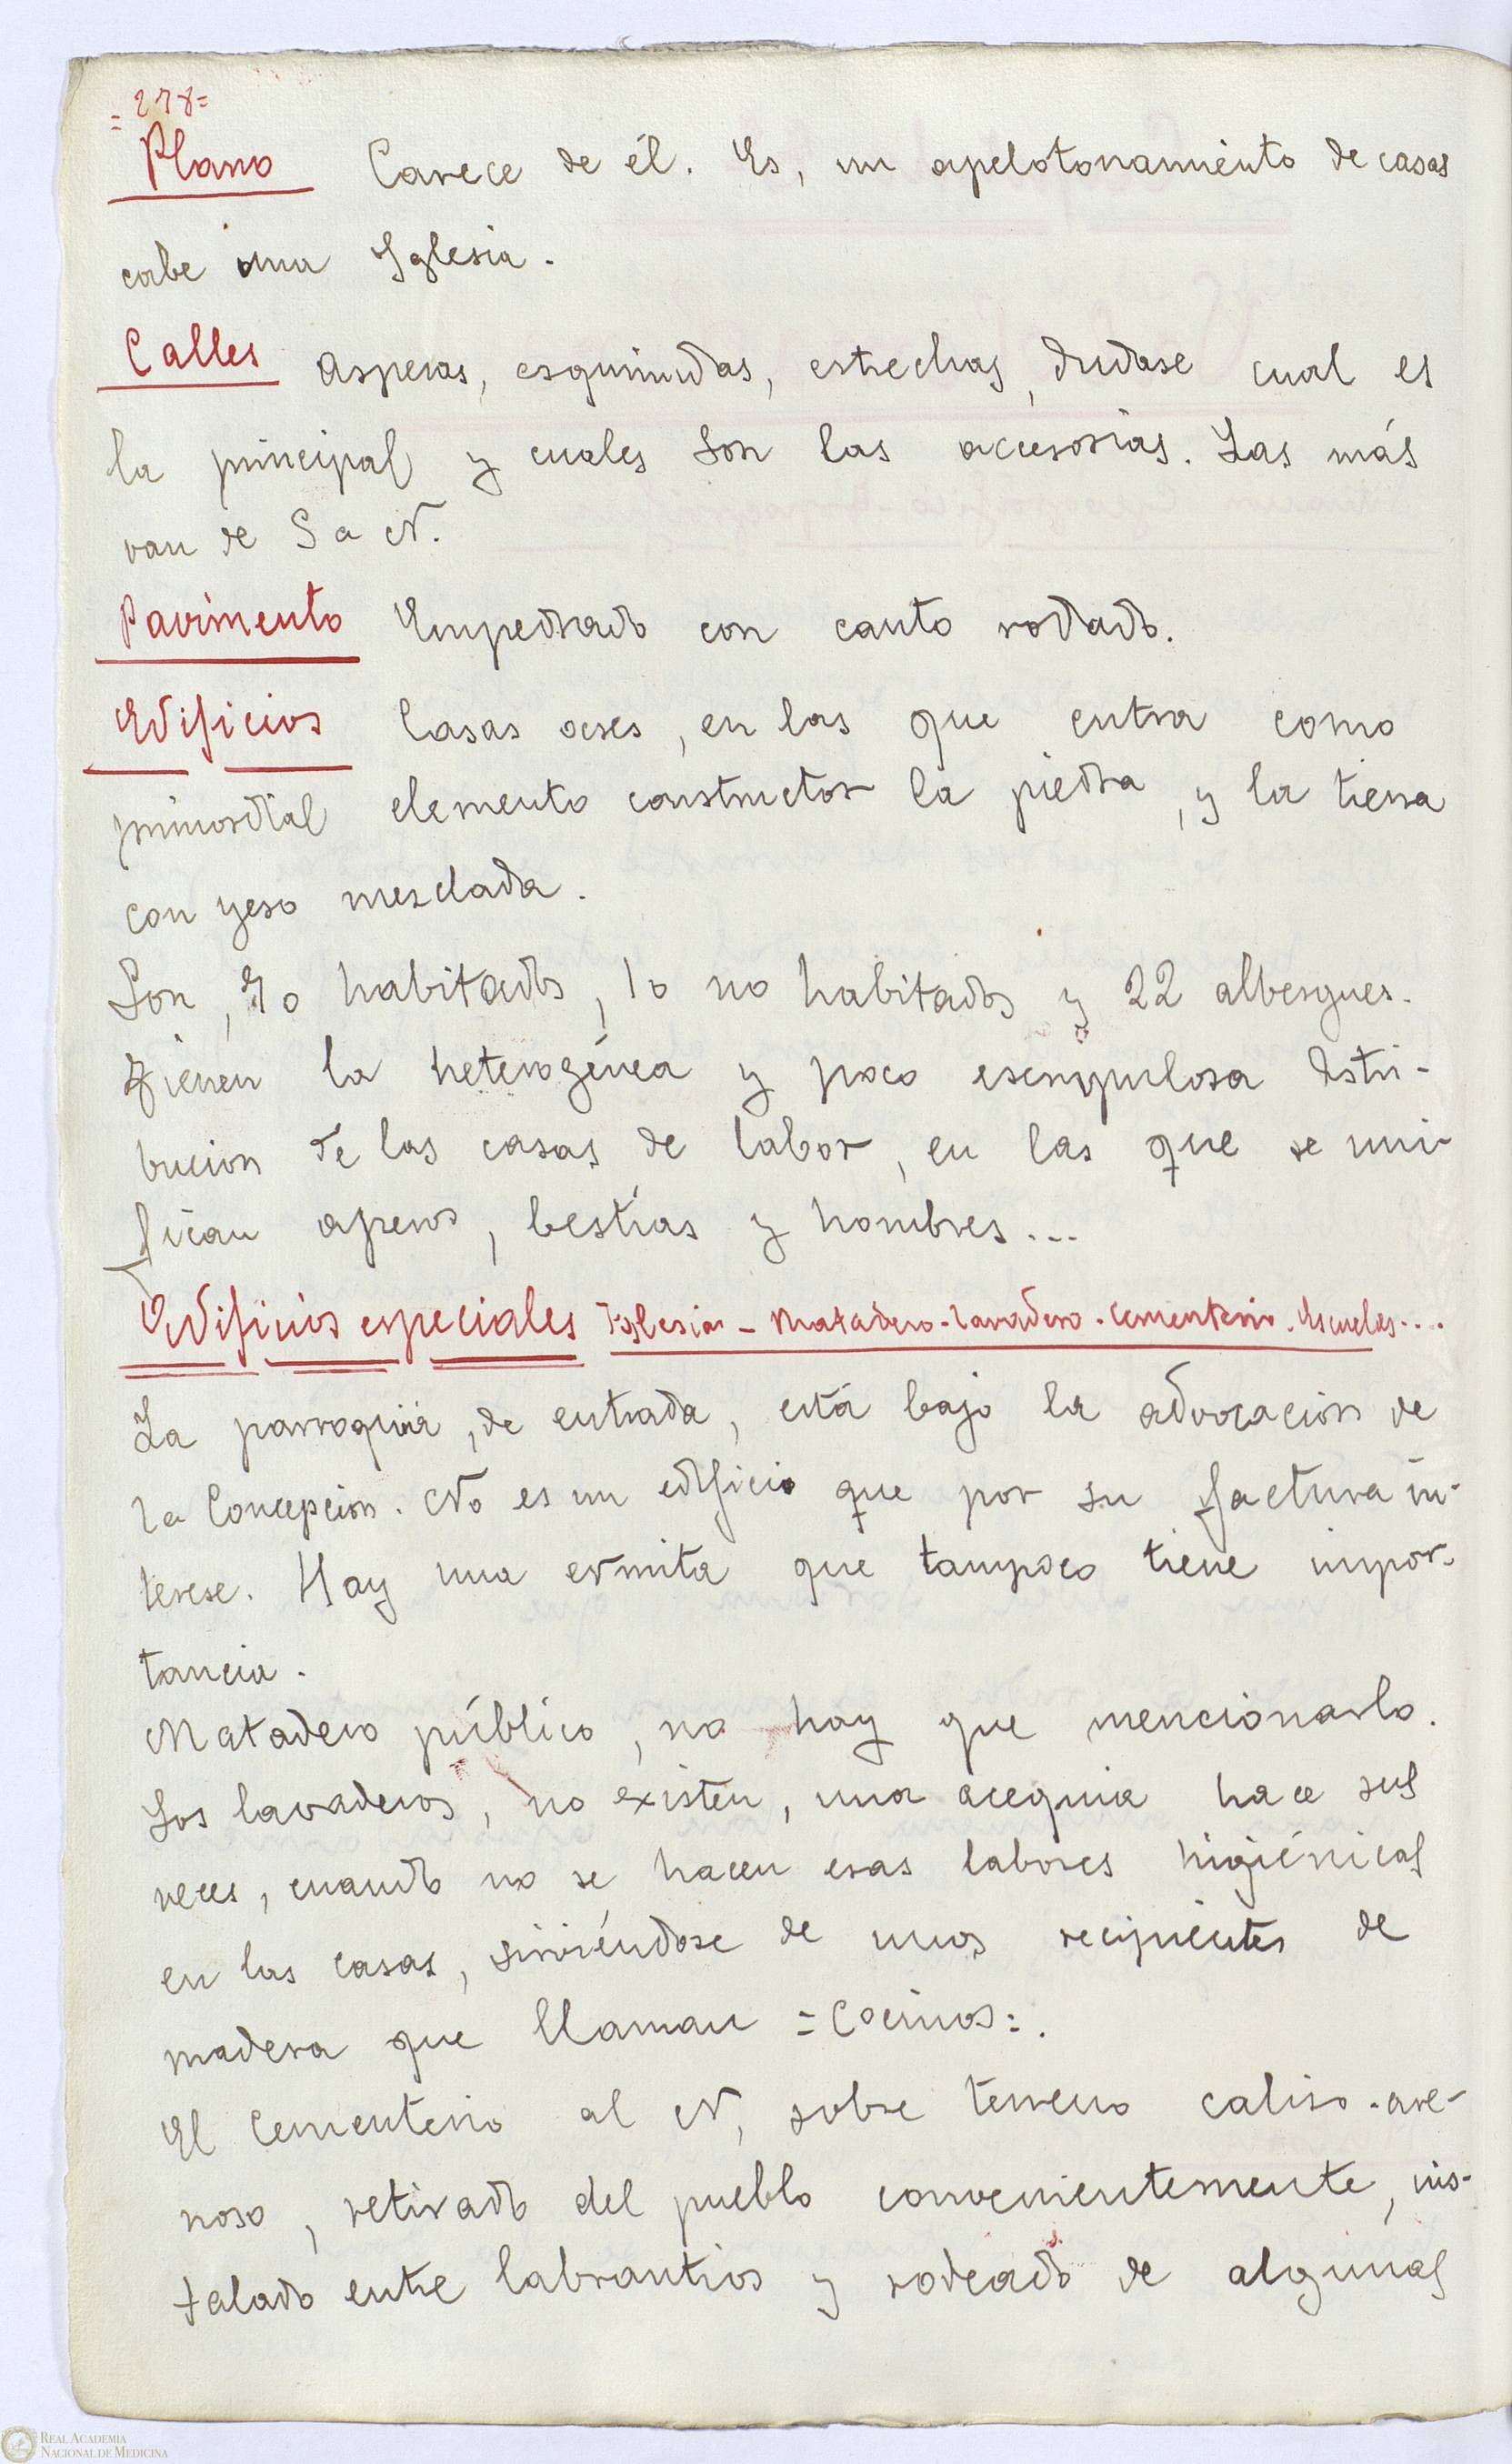 =278=
Plano Carece de él. Es, un apelotonamiento de casas
cabe una Iglesia.
Calles Asperas, esquinudas, estrechas, dudase cual es
la principal y cuales son las accesorias. Las más
van de S a N.
Pavimento Empedrado con canto rodado.
Edificios Casas, en las que entra como
primordial elemento constructor la piedra, y la tierra
con yeso mezclada.
Son, 90 habitados, 10 no habitados y 22 albergues.
Tienen la heterogénea y poco escrupulosa distri-
bucion de las casas de labor, en las que se uni-
fican aperos, bestias y hombres...
Edificios especiales Iglesia - Matadero - Lavadero - Cementerio - Escuelas....
La parroquia, de entrada, está bajo la advocacion de
la Concepcion. No es un edificio que por su factura in-
terese. Hay una ermita que tampoco tiene impor-
tancia.
Matadero público, no hay que mencionarlo.
Los lavaderos, no existen, una acequia hace sus
veces, cuando no se hacen esas labores higiénicas
en las casas, sirviéndose de unos recipientes de
madera que llaman =Cocinos=.
El Cementerio al N, sobre terreno caliso-are-
noso, retirado del pueblo convenientemente, ins-
talado entre labrantios y rodeado de algunas
REAL ACADEMIA
NACIONAL DE MEDICINA